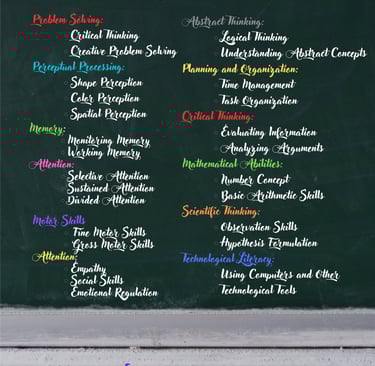 Problem Solving:
Critical Thinking
Creative Problem Solving
Perceptual Processing:
Shape Perception
Color Perception
Spatial Perception
Memory:
Monitoring Memory,
Working Memory
Attention:
Selective Attention
Sustained Attention
Divided Attention
Motor Skills
Fine Motor Skills
Gross Motor Skills
Attention:
Empathy
Social Skills
Emotional Regulation
Abstract Thinking:
Logical Thinking
Understanding Abstract Concepts
Planning and Organization:
Time Management
Task Organization
Critical Thinking:
Evaluating Information
Analyzing Arguments
Mathematical Abilities:
Number Concept
Basic Arithmetic Skills
Scientific Thinking:
Observation Skills
Hypothesis Formulation
Technological Literacy:
Using Computers and Other
Technological Tools